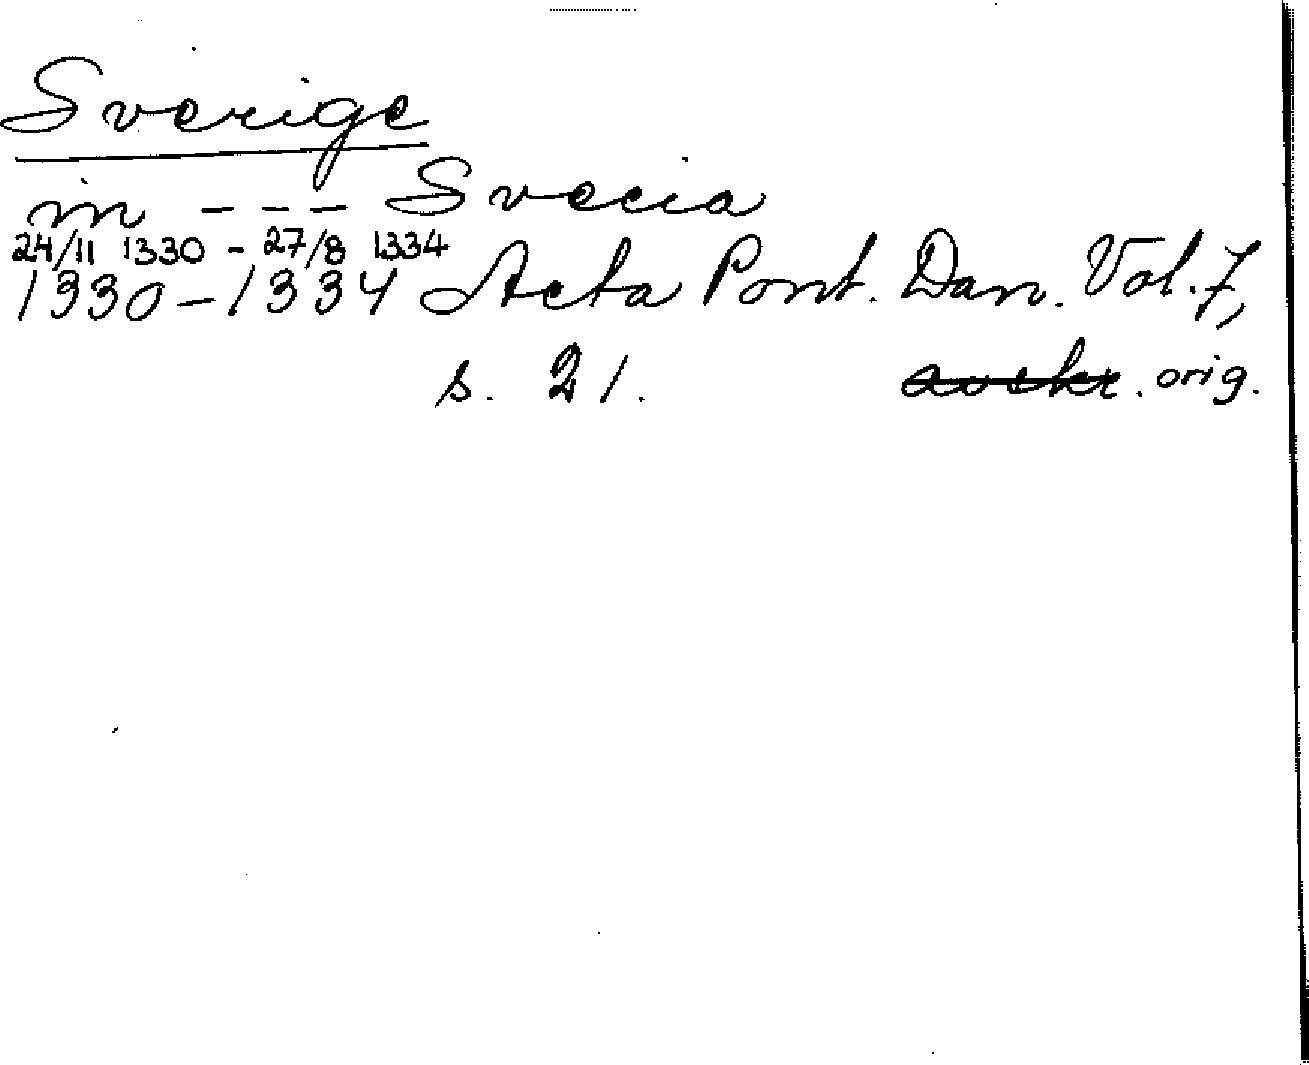 Sverige
in - - - Svecia
24/11 1330 - 27/8 1334
1330-1334 Acta Pont. Dan. Vol. 7,
s. 21. avskr. orig.